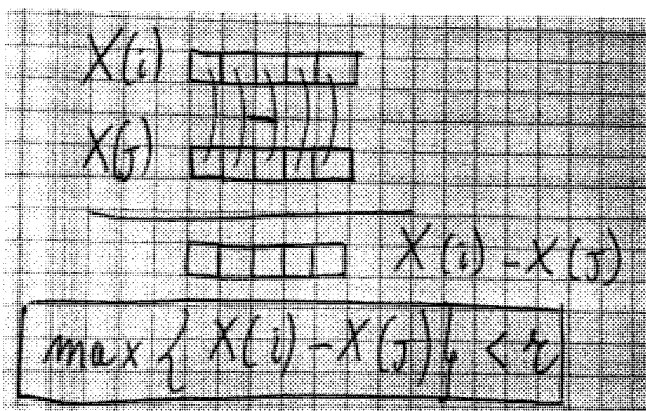 X(i)
X(j)
X(i) - X(j)
max { X(i) - X(j) } < r